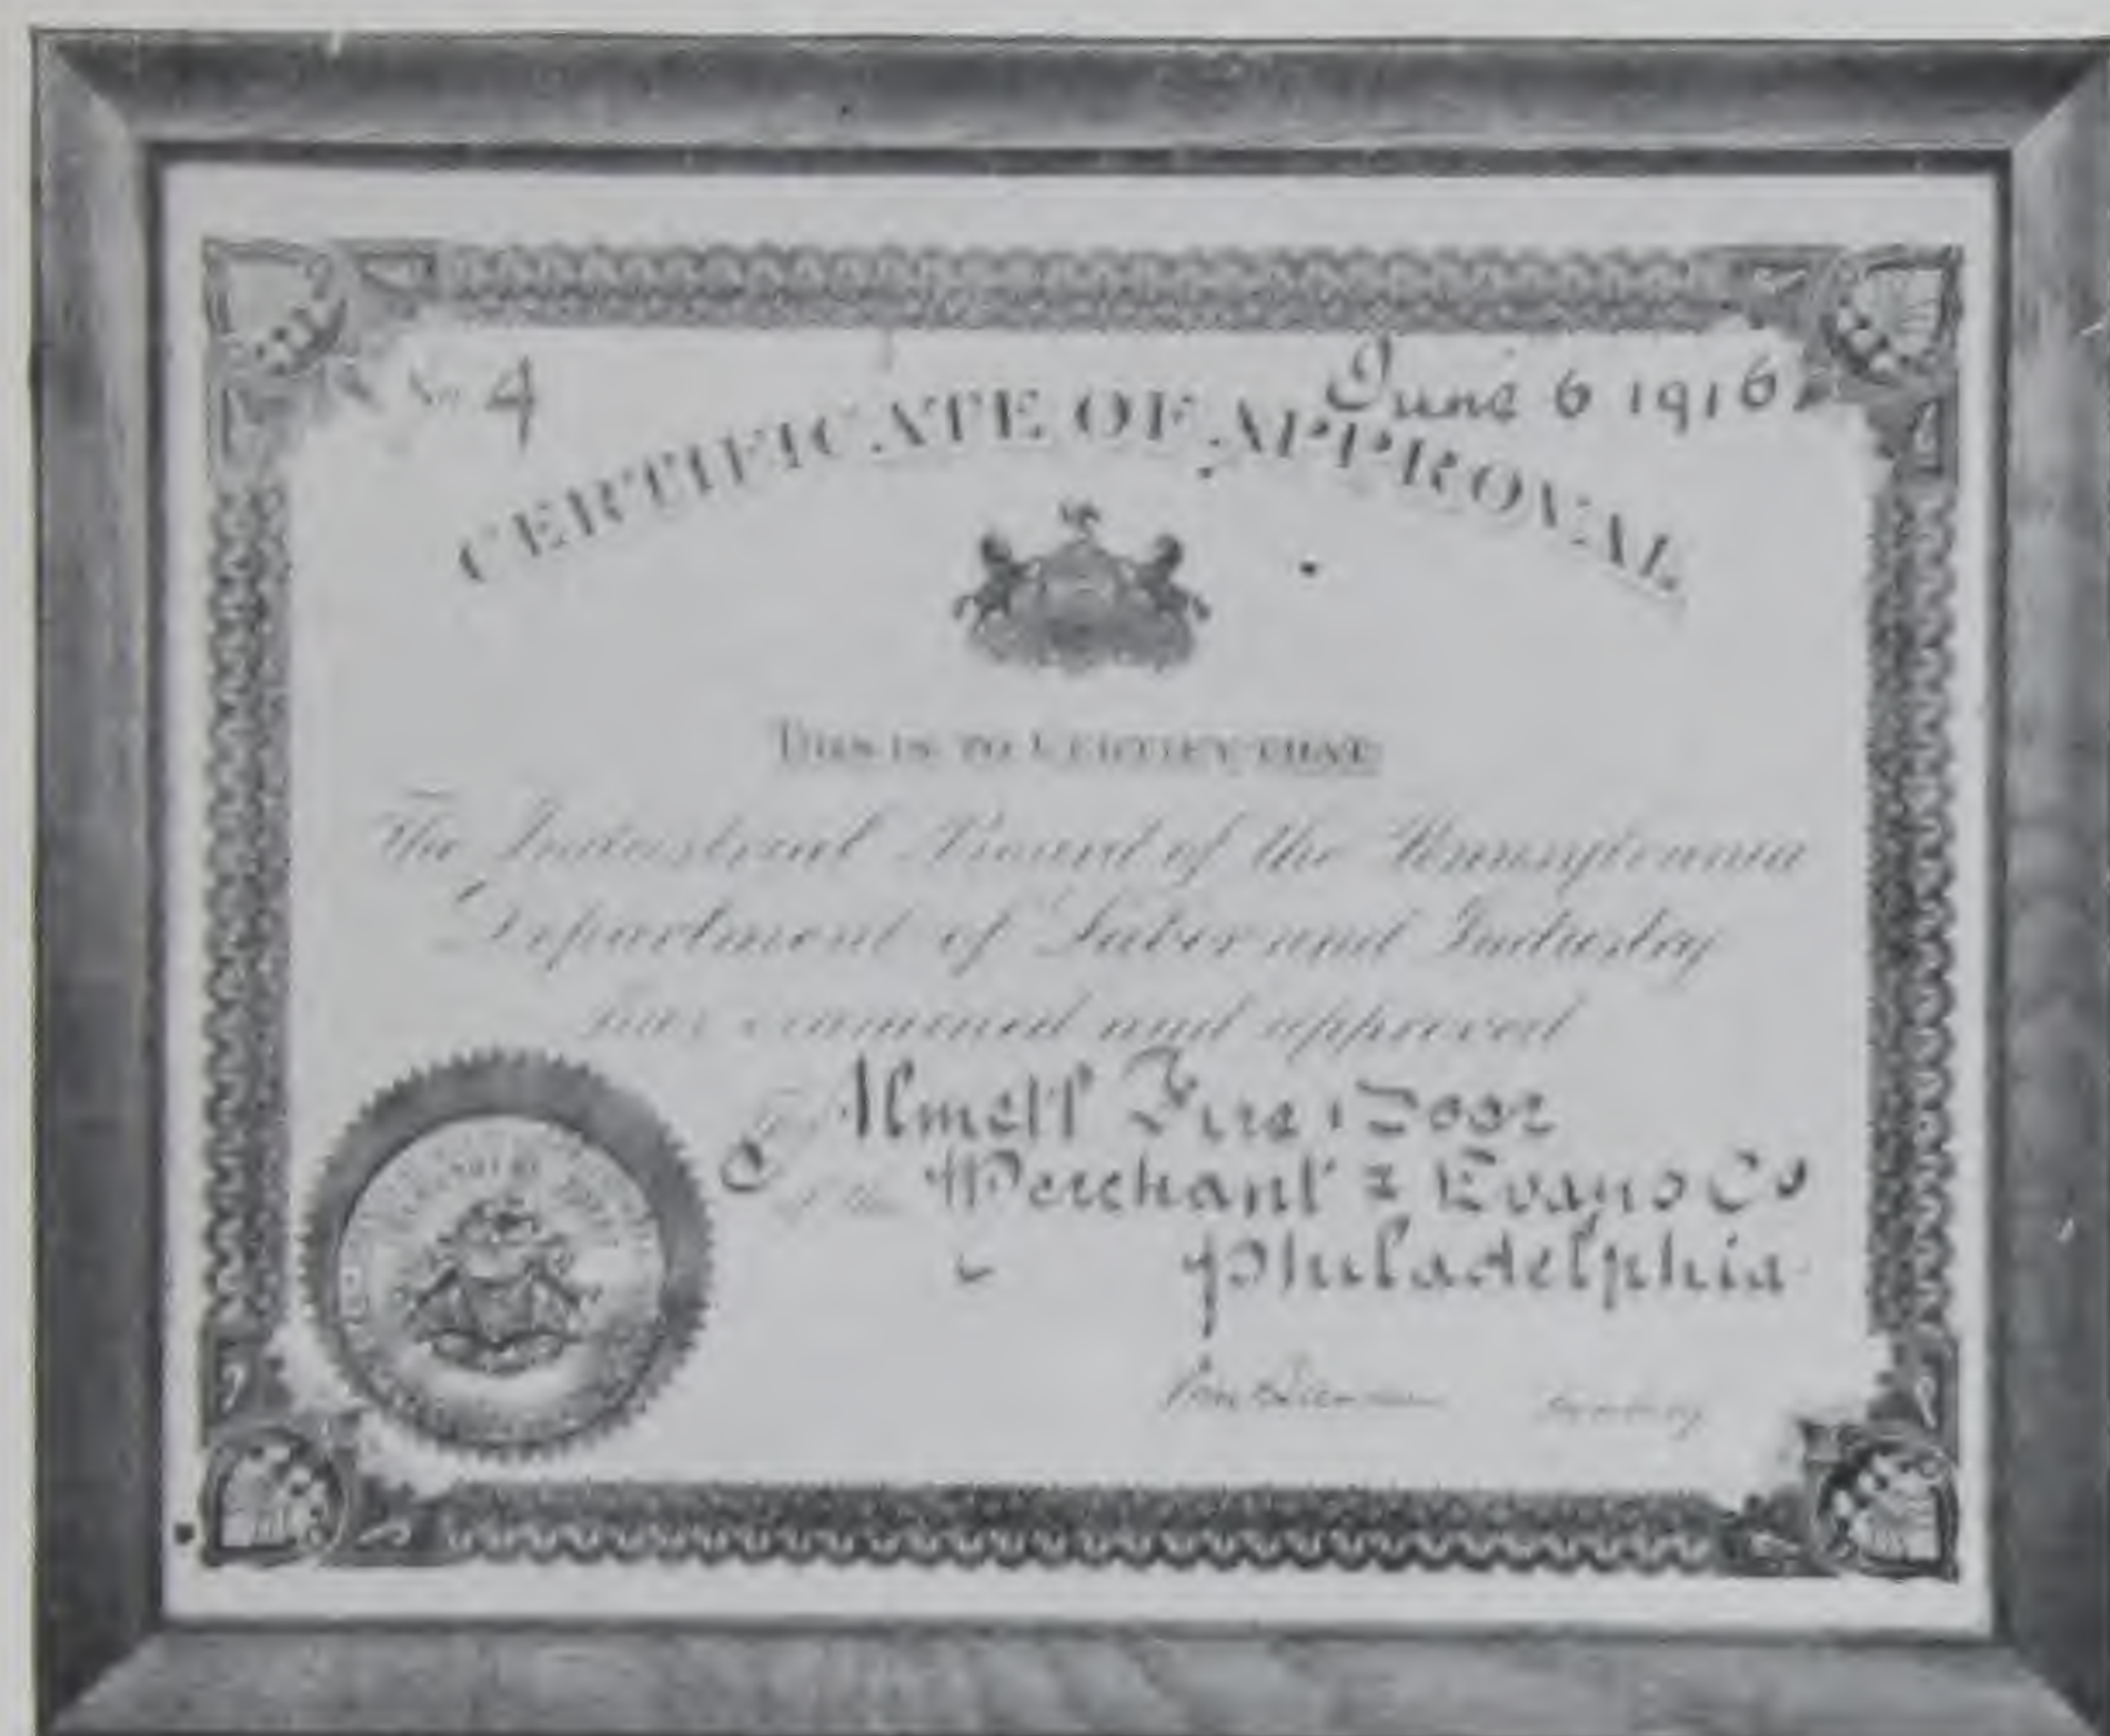 No. 4
June 6 1916
CERTIFICATE OF APPROVAL
THIS IS TO CERTIFY THAT
The Industrial Board of the Pennsylvania
Department of Labor and Industry
has examined and approved
The Almetl Fire Door
of the Merchant & Evans Co
Philadelphia